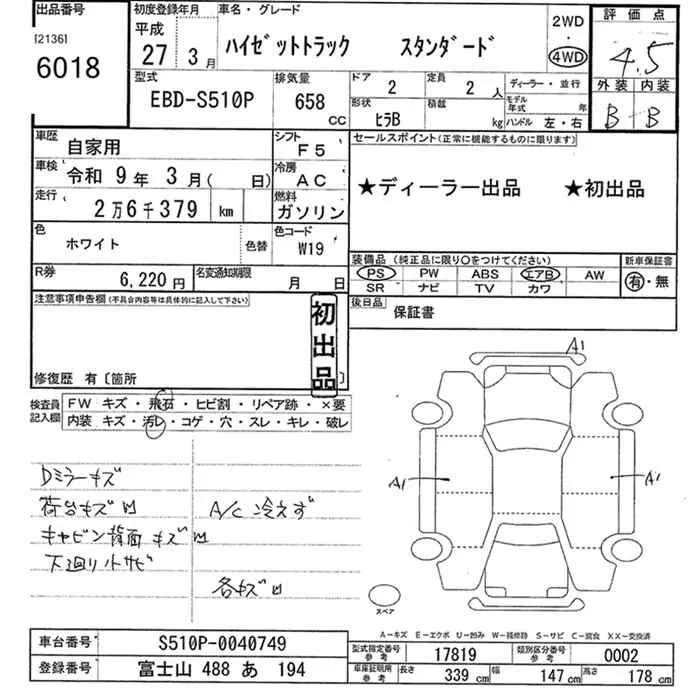 出品番号
[2136]
6018
初度登録年月
平成
27 3月
車名・グレード
ハイゼットトラック スタンダード
2WD
・
4WD
評価点
4.5
外装 内装
B B
型式
EBD-S510P
排気量
658
CC
ドア
2
定員
2人
ディーラー・並行
形状
ヒラB
積載
kg
モデル年式 年
ハンドル 左・右
車歴
自家用
シフト
F5
車検
令和 9年 3月( 日)
冷房
AC
走行
2万6千379 km
燃料
ガソリン
色
ホワイト
色替
色コード
W19
R券
6,220円
名変通知期限
月 日
セールスポイント(正常に機能するものに限ります)
★ディーラー出品 ★初出品
装備品(純正品に限り○をつけてください)
PS PW ABS エアB AW
SR ナビ TV カワ
新車保証書
有・無
後日品
保証書
注意事項申告欄(不具合内容等は具体的に記入して下さい)
初出品
修復歴 有〔箇所 〕
検査員記入欄
FW キズ・飛石・ヒビ割・リペア跡・×要
内装 キズ・汚レ・コゲ・穴・スレ・キレ・破レ
Dミラーキズ
荷台キズ凹 A/C 冷えず
キャビン背面キズ凹
下廻り小サビ
各キズ凹
A1
A1
A1
スペア
A-キズ E-エクボ U-凹み W-補修跡 S-サビ C-腐食 XX-交換済
車台番号
S510P-0040749
型式指定番号
参考
17819
類別区分番号
参考
0002
登録番号
富士山 488 あ 194
車庫証明用
参考
長さ 339 cm
幅 147 cm
高さ 178 cm